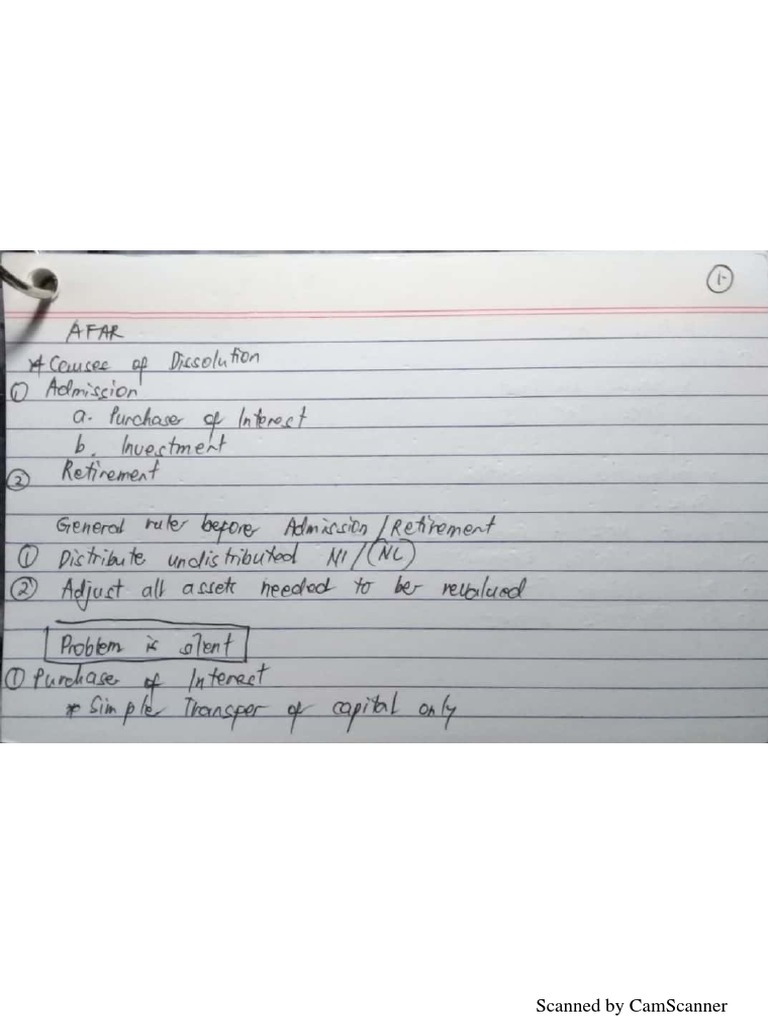 1.
AFAR
* Causes of Dissolution
① Admission
a. Purchase of Interest
b. Investment
② Retirement
General rule before Admission/Retirement
① Distribute undistributed NI/(NL)
② Adjust all assets needed to be revalued
Problem is silent
① Purchase of Interest
* Simple Transfer of capital only
Scanned by CamScanner